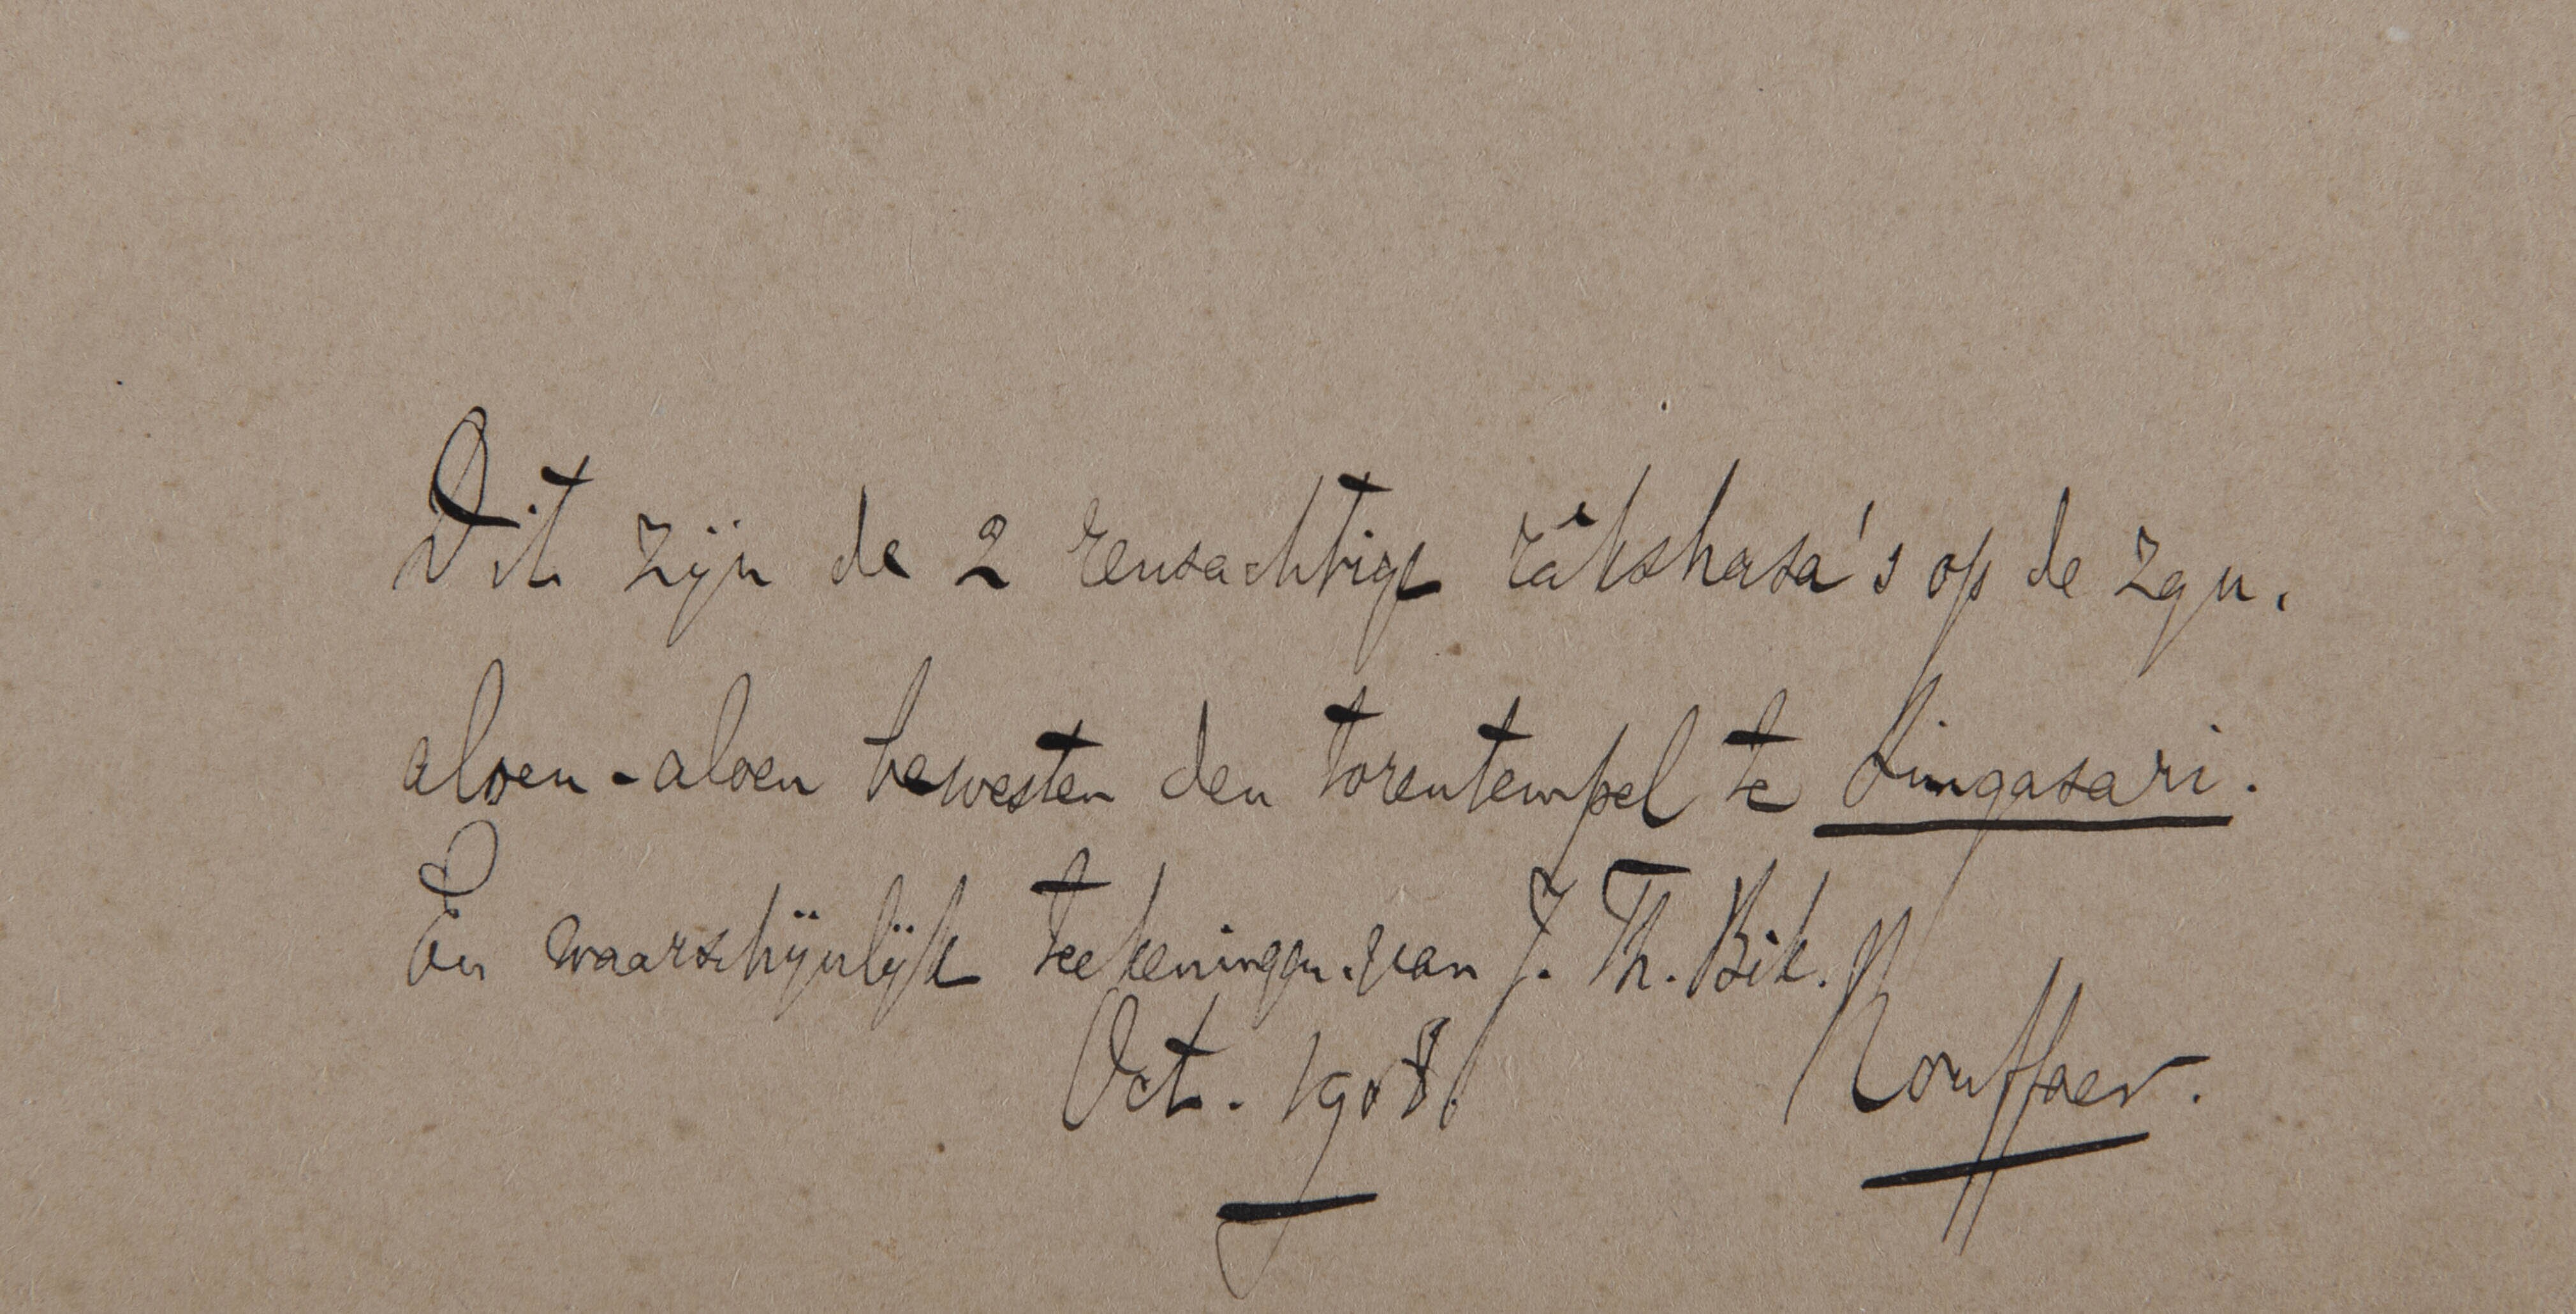 Dit zijn de 2 reusachtige râkshasa's op de zgn.
aloen-aloen bewesten den torentempel te Singasari.
En waarschijnlijk teekeningen van J. Th. Bik.
Oct. 1908. Rouffaer.